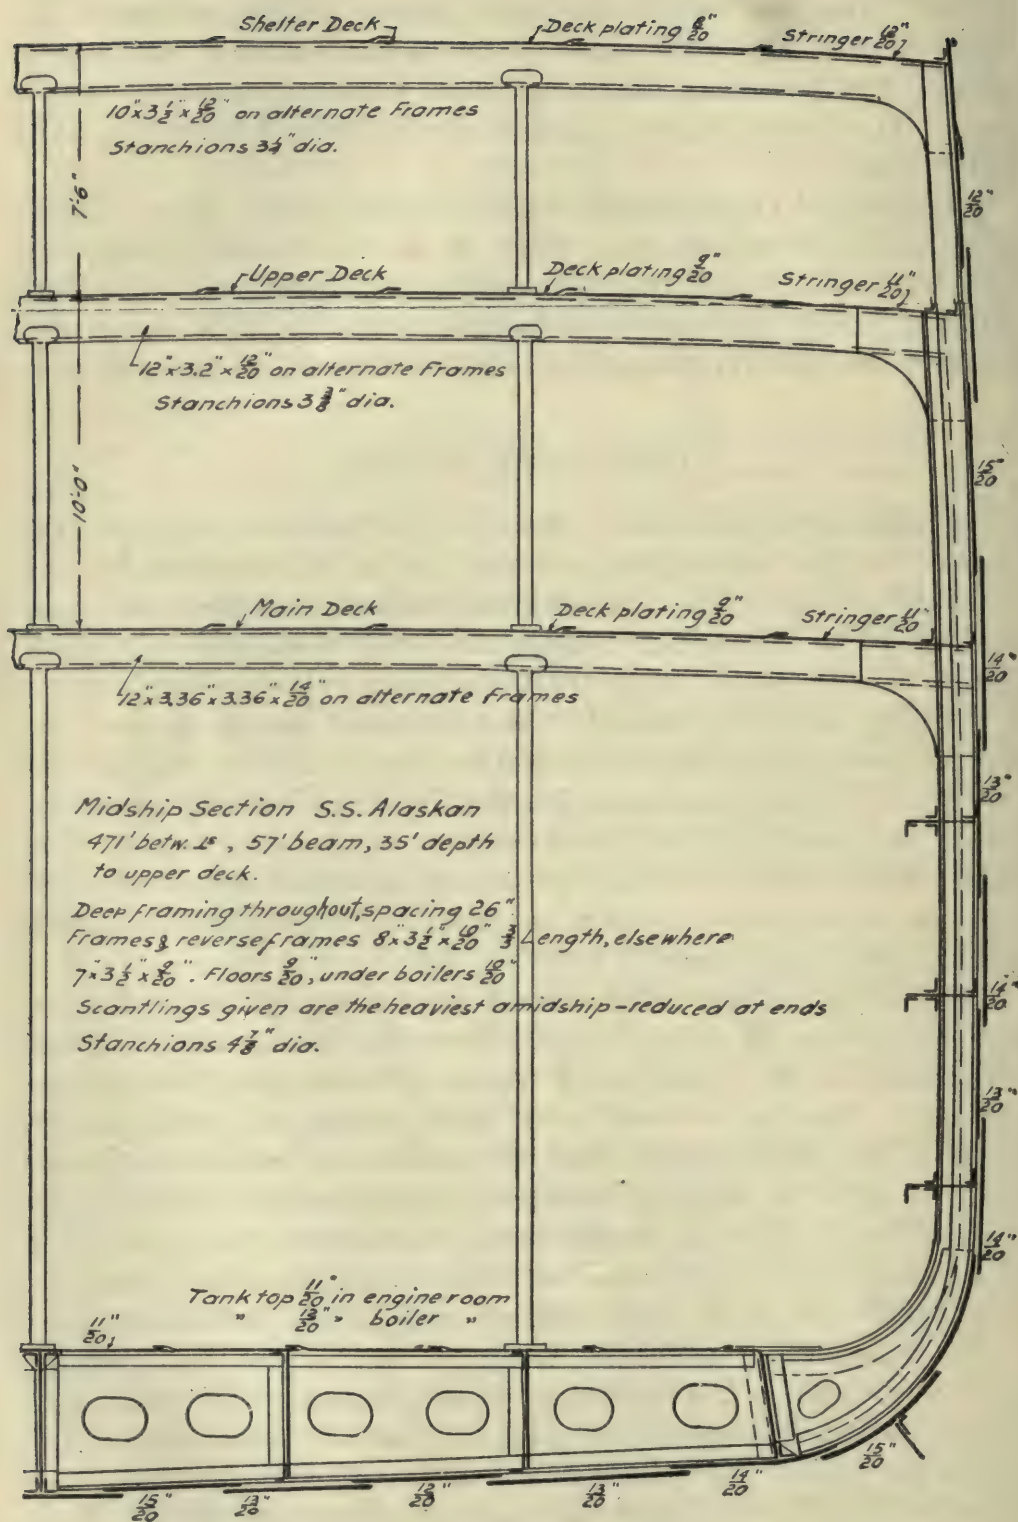 Shelter Deck
Deck plating 8/20"
Stringer 12/20"
10" x 3 1/2" x 12/20" on alternate Frames
Stanchions 3 1/4" dia.
7'-6"
12/20"
Upper Deck
Deck plating 9/20"
Stringer 11/20"
12" x 3.2" x 12/20" on alternate Frames
Stanchions 3 3/8" dia.
10'-0"
15/20"
Main Deck
Deck plating 9/20"
Stringer 11/20"
14/20"
12" x 3.36" x 3.36" x 14/20" on alternate Frames
13/20"
Midship Section S.S. Alaskan
471' betw. , 57' beam, 35' depth
to upper deck.
Deep framing throughout, spacing 26"
Frames & reverse frames 8" x 3 1/2" x 10/20" Length, elsewhere
7" x 3 1/2" x 9/20". Floors 9/20", under boilers 10/20"
Scantlings given are the heaviest amidship-reduced at ends
Stanchions 4 7/8" dia.
14/20"
13/20"
14/20"
Tank top 11/20" in engine room
" 13/20" " boiler "
11/20"
15/20"
13/20"
12/20"
13/20"
14/20"
15/20"